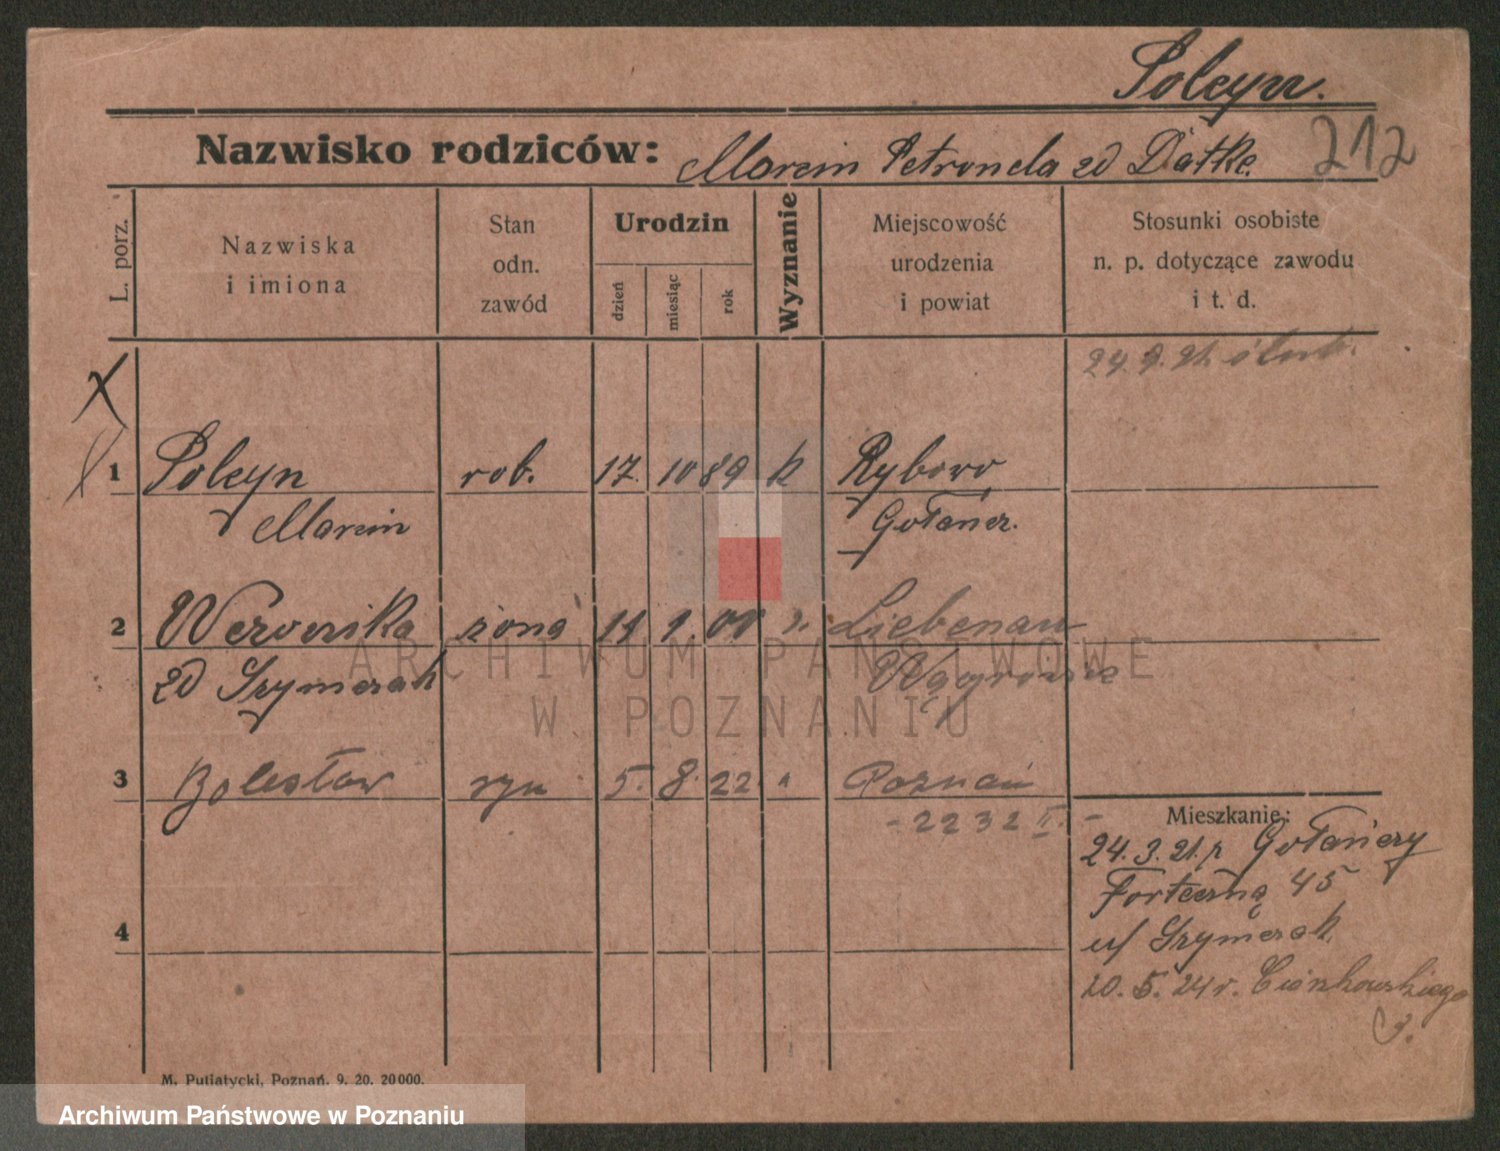 Polcyn.
Nazwisko rodziców: Marcin Petronela zd Datke.
212
L. porz.
Nazwiska
i imiona
Stan
odn.
zawód
Urodzin
dzień
miesiąc
rok
Wyznanie
Miejscowość
urodzenia
i powiat
Stosunki osobiste
n. p. dotyczące zawodu
i t. d.
24. 9. 21. ślub.
1 Polcyn rob. 17. 10 89 k Rybowo
Marcin Gołańcz.
2 Weronika żona 11 1. 00 Liebenau
zd Szymczak Wągrowiec
3 Bolesław syn 5. 8. 22. " Poznań
- 2232 II. -
Mieszkanie:
24. 3. 21. z Gołańczy
Forteczną 45
u/ Szymczak
20. 5. 24 r. Cieszkowskiego
3.
4
M. Putiatycki, Poznań. 9. 20. 20000.
ARCHIWUM PAŃSTWOWE
W POZNANIU
Archiwum Państwowe w Poznaniu